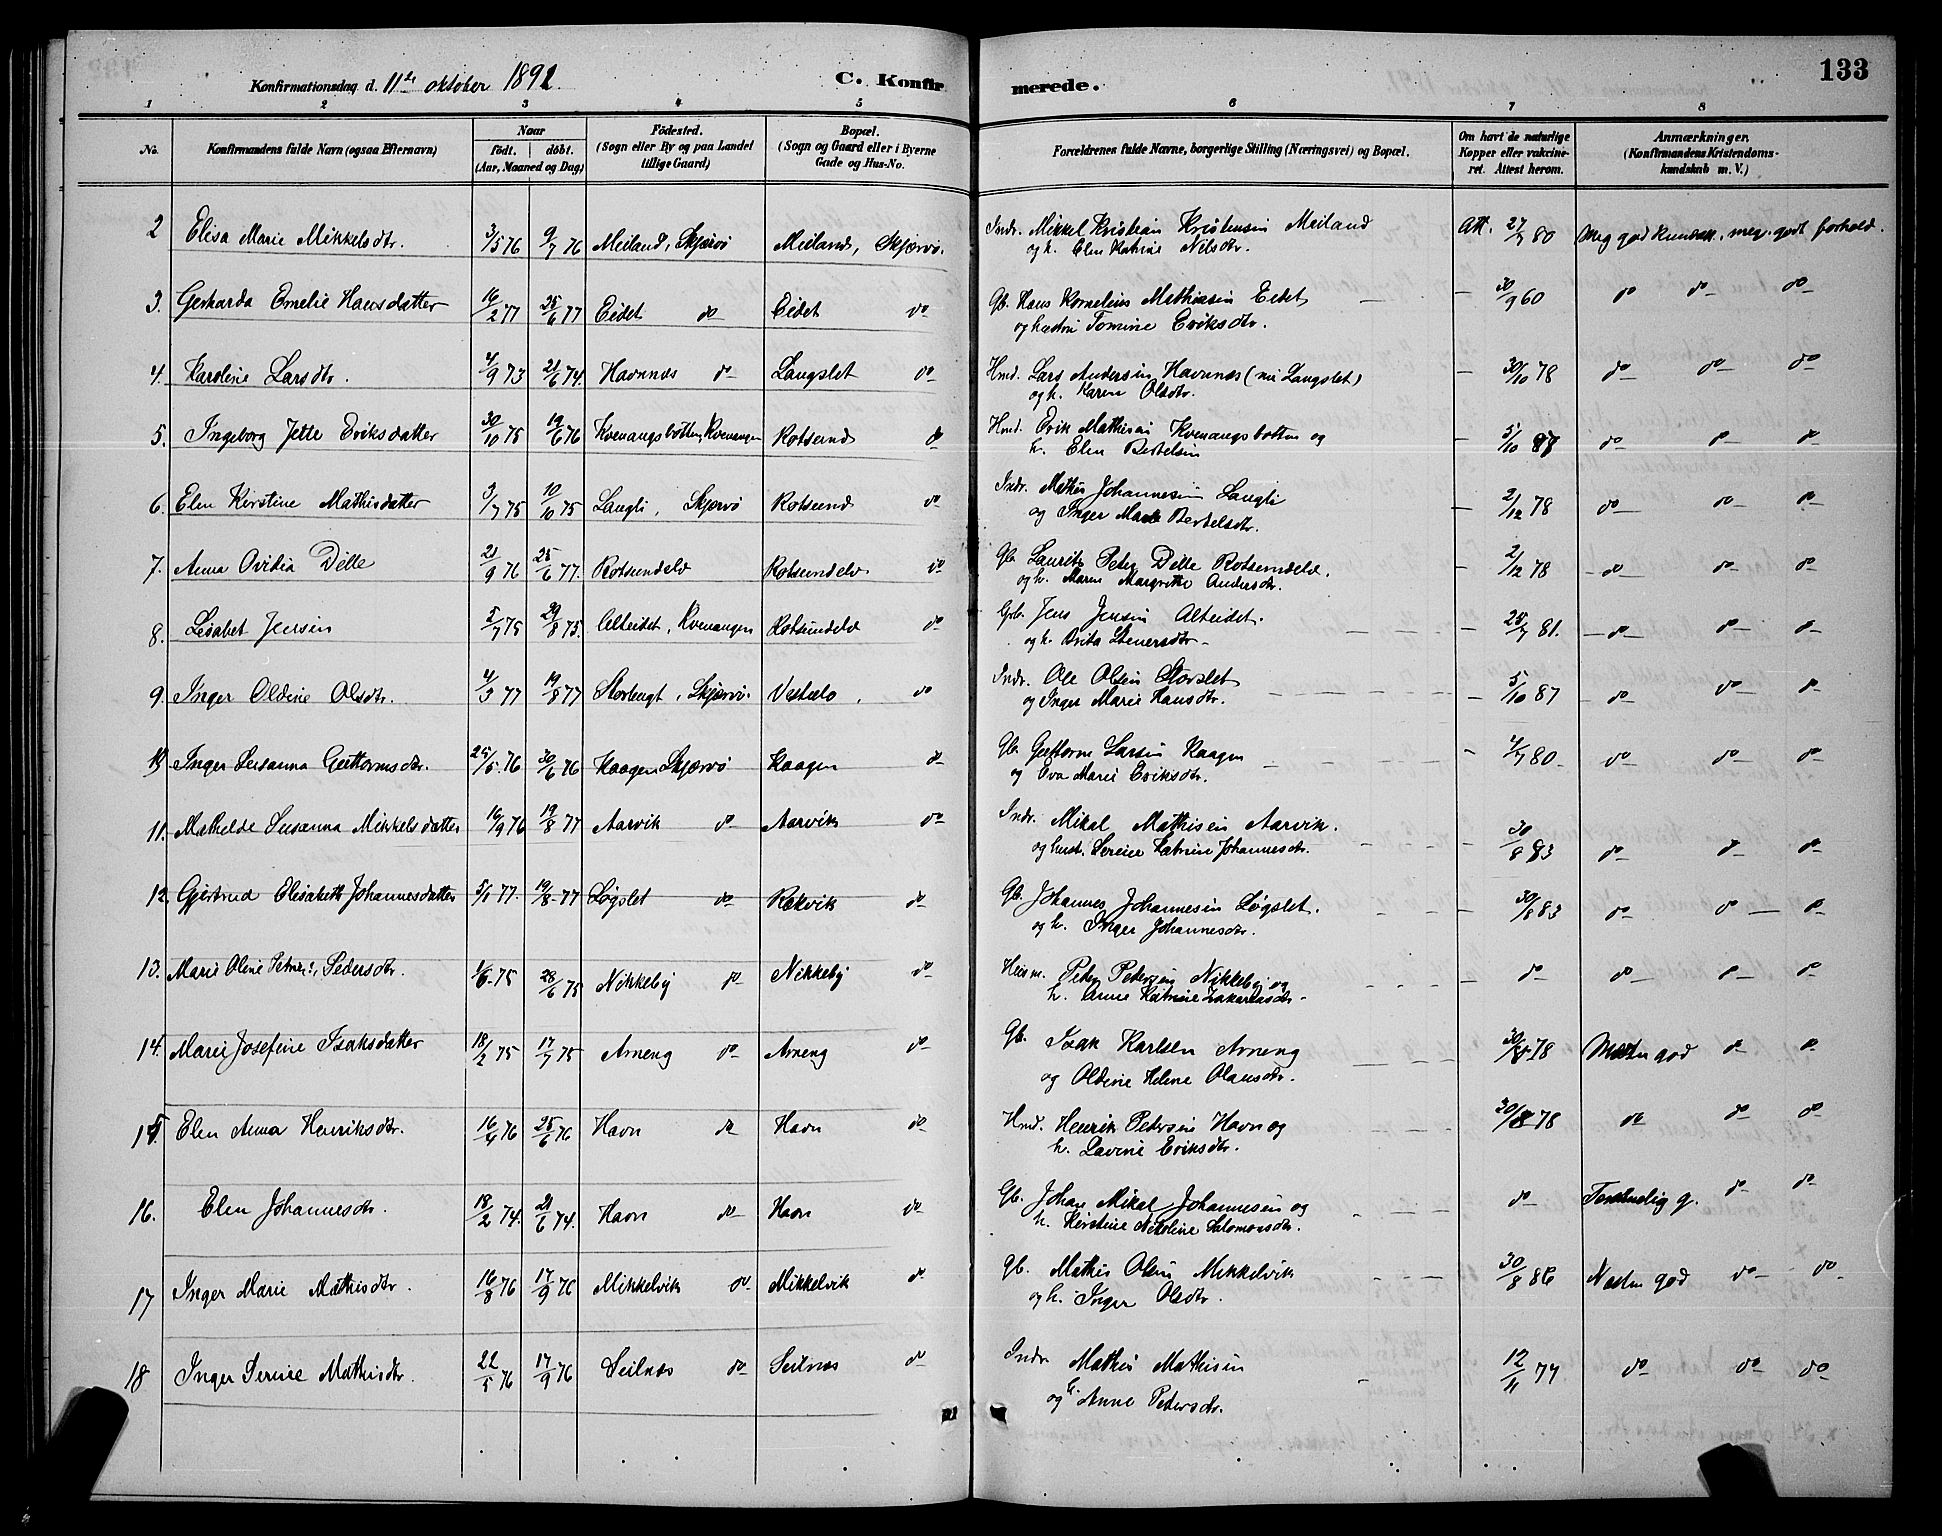 Konfirmationsdag d. 11te oktober 1891. C. Konfirmerede. 133
1 2 3 4 5 6 7 8
No. Konfirmandens fulde Navn (ogsaa Efternavn) Naar født. døbt. (Aar, Maaned og Dag) Fødested. (Sogn eller By og paa Landet tillige Gaard) Bopæl. (Sogn og Gaard eller i Byerne Gade og Hus-No. Forældrenes fulde Navne, borgerlige Stilling (Næringsvei) og Bopæl. Om havt de naturlige Kopper eller vaccineret. Attest herom. Anmærkninger. (Konfirmandens Kristendomskundskab m. V.)
2 Elisa Marie Mikkelsdtr. 3/5 76 9/7 76 Meiland, Skjærvø Meiland, Skjærvø. Indr. Mikkel Kristian Kristensen Meiland Att. 27/7 80 Meg god kundsk., meg. godt forhold.
og h. Elen Katrine Nilsdtr.
3. Gerharda Emelie Hansdatter 16/2 77 25/6 77 Eidet do Eidet do Gb. Hans Kornelius Mathisen Eidet – 30/9 60 do do do
og hustru Tomine Eriksdtr.
4. Karoline Larsdtr. 4/9 73 21/6 74. Havnnes do Langslet do Hmd. Lars Andersen Havnnes (nu Langslet) – 30/10 78 do do do
og h. Karen Olsdtr.
5. Ingeborg Jette Eriksdatter 30/10 75 19/6 76 Kvenangsbotten, Kvenangen Rotsund do Hmd. Erik Mathisen Kvenangsbotten og – 5/10 87 do do do
h. Elen Bertelsen
6. Elen Kirstine Mathisdatter 3/7 75 10/10 75 Langli, Skjærvø Rotsund do Indr. Mathis Johannesen Langli – 2/12 78 do do do
og Inger Marie Bertelsdtr.
7. Anna Ovidia Dille 21/9 76 25/6 77. Rotsundelv Rotsundelv do Gb. Lauritz Peter Dille Rotsundelv. – 2/12 78 do do do
og h. Maren Margrethe Andersdtr.
8. Lisabet Jensen 5/7 75 29/8 75. Alteidet, Kvenangen Rotsundelv do Gb. Jens Jensen Alteidet. – 25/7 81. do do do
og h. Brita Stenersdtr.
9. Inger Oldine Olsdtr. 4/3 77 19/8 77 Storbugt, Skjærvø. do Indr. Ole Olsen Storslet – 5/10 87 do do do
og Inger Marie Hansdtr.
10 Inger Susanna Guttormsdtr. 25/5 76 30/6 76 Kaagen Skjærvø Kaagen do Gb. Guttorm Larsen Kaagen – 4/7 80 do do do
og Eva Marie Eriksdtr.
11. Mathelde Susanna Mikkelsdatter 16/9 76 19/8 77 Aarvik do Aarvik do Indr. Mikal Mathisen Aarvik. – 30/8 83 do do do
og hust. Serine Katrine Johannesdtr.
12 Gjertrud Elisabeth Johannesdatter 5/1 77. 19/8 77 Løgslet do Rakvik do Gb. Johannes Johannesen Løgslet. – 30/8 83 do do do
og h. Inger Johannesdtr.
13. Marie Oline Pedersdtr. 1/6 75 28/6 75 Nikkeby do Nikkeby do Husm. Peder Petersen Nikkeby og – do do do do
h. Anne Katrine Zakariasdtr.
14. Marie Josefine Isaksdatter 18/2 75 17/7 75 Arneng do Arneng do Gb. Isak Karlsen Arneng 30/8 78 Mesten god do do
og Oldine Helene Olausdtr.
15 Elen Anna Henriksdtr. 16/4 76 25/6 76 Havn do Havn do Hmd. Henrik Petersen Havn og 30/8 78 do do do
h. Lavine Eriksdtr.
16. Elen Johannesdtr. 18/2 74. 21/6 74. Havn do Havn do Gb. Johan Mikal Johannesen og do Temmelig g. do do
h. Kirstine Nikoline Salomonsdtr.
17 Inger Marie Mathisdtr 16/8 76 17/9 76 Mikkelvik do Mikkelvik do Gb. Mathis Olsen Mikkelvik 30/8 86 Nesten god do do
og h. Inger Olsdtr.
18 Inger Serine Mathisdtr. 22/5 76 17/9 76 Seilnæs do Seilnæs do Indr. Mathis Mathisen 12/11 77 do do do
og h. Anne Petersdtr.